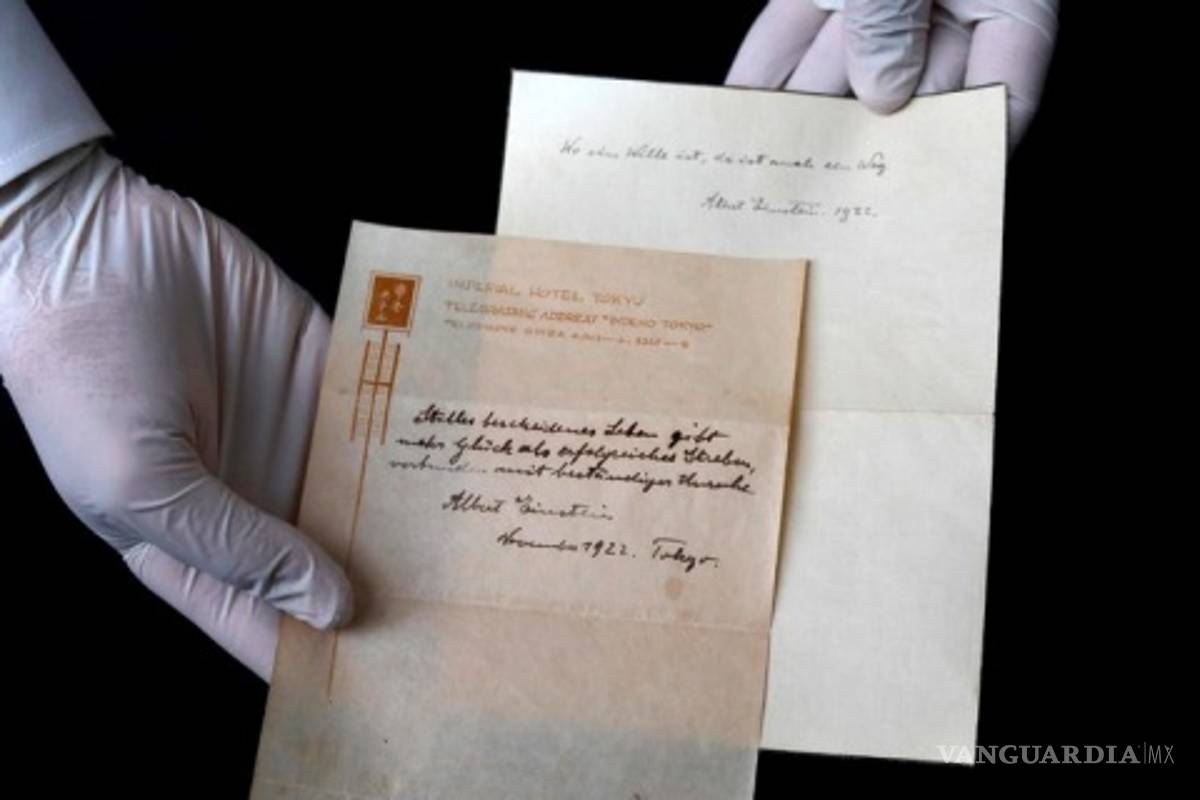 Wo ein Wille ist, da ist auch ein Weg
Albert Einstein. 1922.
IMPERIAL HOTEL TOKYO
TELEGRAPHIC ADDRESS "IMPEHO TOKYO"
TELEPHONE GINZA
Stilles bescheidenes Leben gibt
mehr Glück als erfolgreiches Streben,
verbunden mit beständiger Unruhe.
Albert Einstein
November 1922. Tokyo.
VANGUARDIA|MX